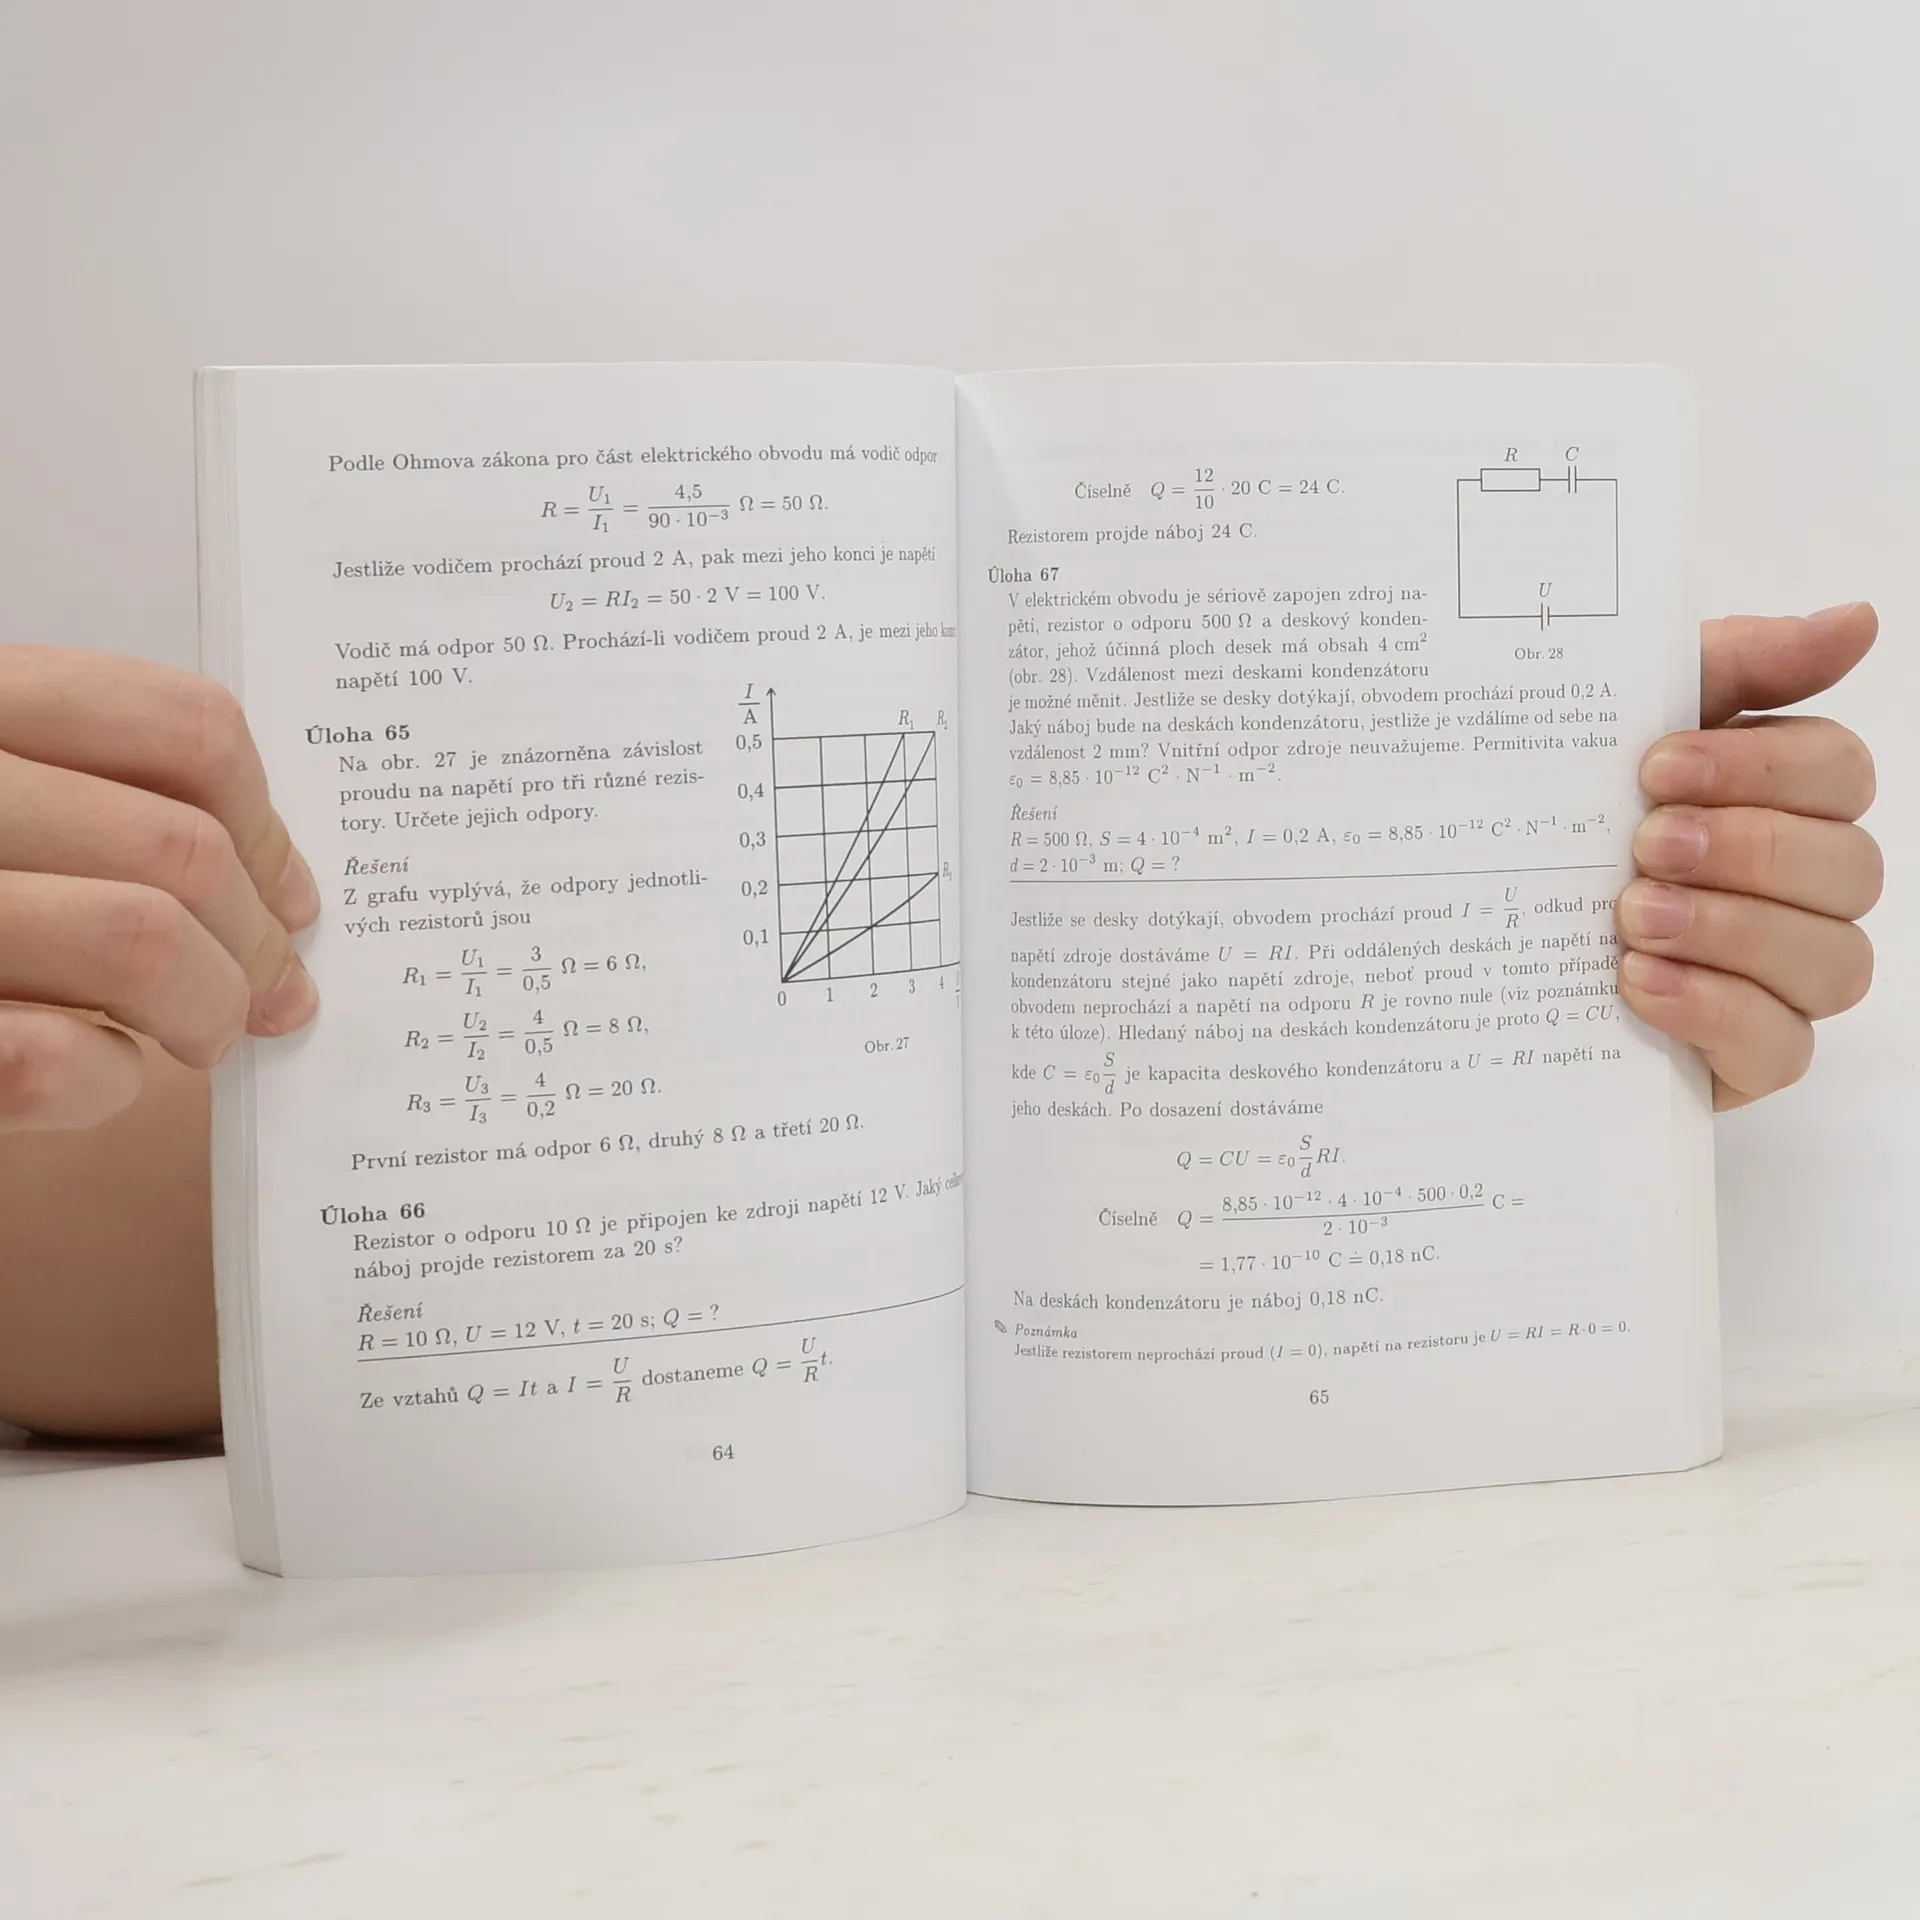 Podle Ohmova zákona pro část elektrického obvodu má vodič odpor
R = U₁/I₁ = 4,5/(90 · 10⁻³) Ω = 50 Ω.
Jestliže vodičem prochází proud 2 A, pak mezi jeho konci je napětí
U₂ = RI₂ = 50 · 2 V = 100 V.
Vodič má odpor 50 Ω. Prochází-li vodičem proud 2 A, je mezi jeho
napětí 100 V.
Úloha 65
Na obr. 27 je znázorněna závislost
proudu na napětí pro tři různé rezis-
tory. Určete jejich odpory.
Řešení
Z grafu vyplývá, že odpory jednotli-
vých rezistorů jsou
R₁ = U₁/I₁ = 3/0,5 Ω = 6 Ω,
R₂ = U₂/I₂ = 4/0,5 Ω = 8 Ω,
R₃ = U₃/I₃ = 4/0,2 Ω = 20 Ω.
I/A
R₁ R₂
0,5
0,4
0,3
R₃
0,2
0,1
0 1 2 3 4
Obr. 27
První rezistor má odpor 6 Ω, druhý 8 Ω a třetí 20 Ω.
Úloha 66
Rezistor o odporu 10 Ω je připojen ke zdroji napětí 12 V. Jaký
náboj projde rezistorem za 20 s?
Řešení
R = 10 Ω, U = 12 V, t = 20 s; Q = ?
Ze vztahů Q = It a I = U/R dostaneme Q = U/R t.
64
Číselně Q = 12/10 · 20 C = 24 C.
Rezistorem projde náboj 24 C.
R C
U
Obr. 28
Úloha 67
V elektrickém obvodu je sériově zapojen zdroj na-
pětí, rezistor o odporu 500 Ω a deskový konden-
zátor, jehož účinná ploch desek má obsah 4 cm²
(obr. 28). Vzdálenost mezi deskami kondenzátoru
je možné měnit. Jestliže se desky dotýkají, obvodem prochází proud 0,2 A.
Jaký náboj bude na deskách kondenzátoru, jestliže je vzdálíme od sebe na
vzdálenost 2 mm? Vnitřní odpor zdroje neuvažujeme. Permitivita vakua
ε₀ = 8,85 · 10⁻¹² C² · N⁻¹ · m⁻².
Řešení
R = 500 Ω, S = 4 · 10⁻⁴ m², I = 0,2 A, ε₀ = 8,85 · 10⁻¹² C² · N⁻¹ · m⁻²,
d = 2 · 10⁻³ m; Q = ?
Jestliže se desky dotýkají, obvodem prochází proud I = U/R, odkud pro
napětí zdroje dostáváme U = RI. Při oddálených deskách je napětí na
kondenzátoru stejné jako napětí zdroje, neboť proud v tomto případě
obvodem neprochází a napětí na odporu R je rovno nule (viz poznámku
k této úloze). Hledaný náboj na deskách kondenzátoru je proto Q = CU,
kde C = ε₀ S/d je kapacita deskového kondenzátoru a U = RI napětí na
jeho deskách. Po dosazení dostáváme
Q = CU = ε₀ S/d RI.
Číselně Q = (8,85 · 10⁻¹² · 4 · 10⁻⁴ · 500 · 0,2)/(2 · 10⁻³) C =
= 1,77 · 10⁻¹⁰ C ≐ 0,18 nC.
Na deskách kondenzátoru je náboj 0,18 nC.
✎ Poznámka
Jestliže rezistorem neprochází proud (I = 0), napětí na rezistoru je U = RI = R·0 = 0.
65